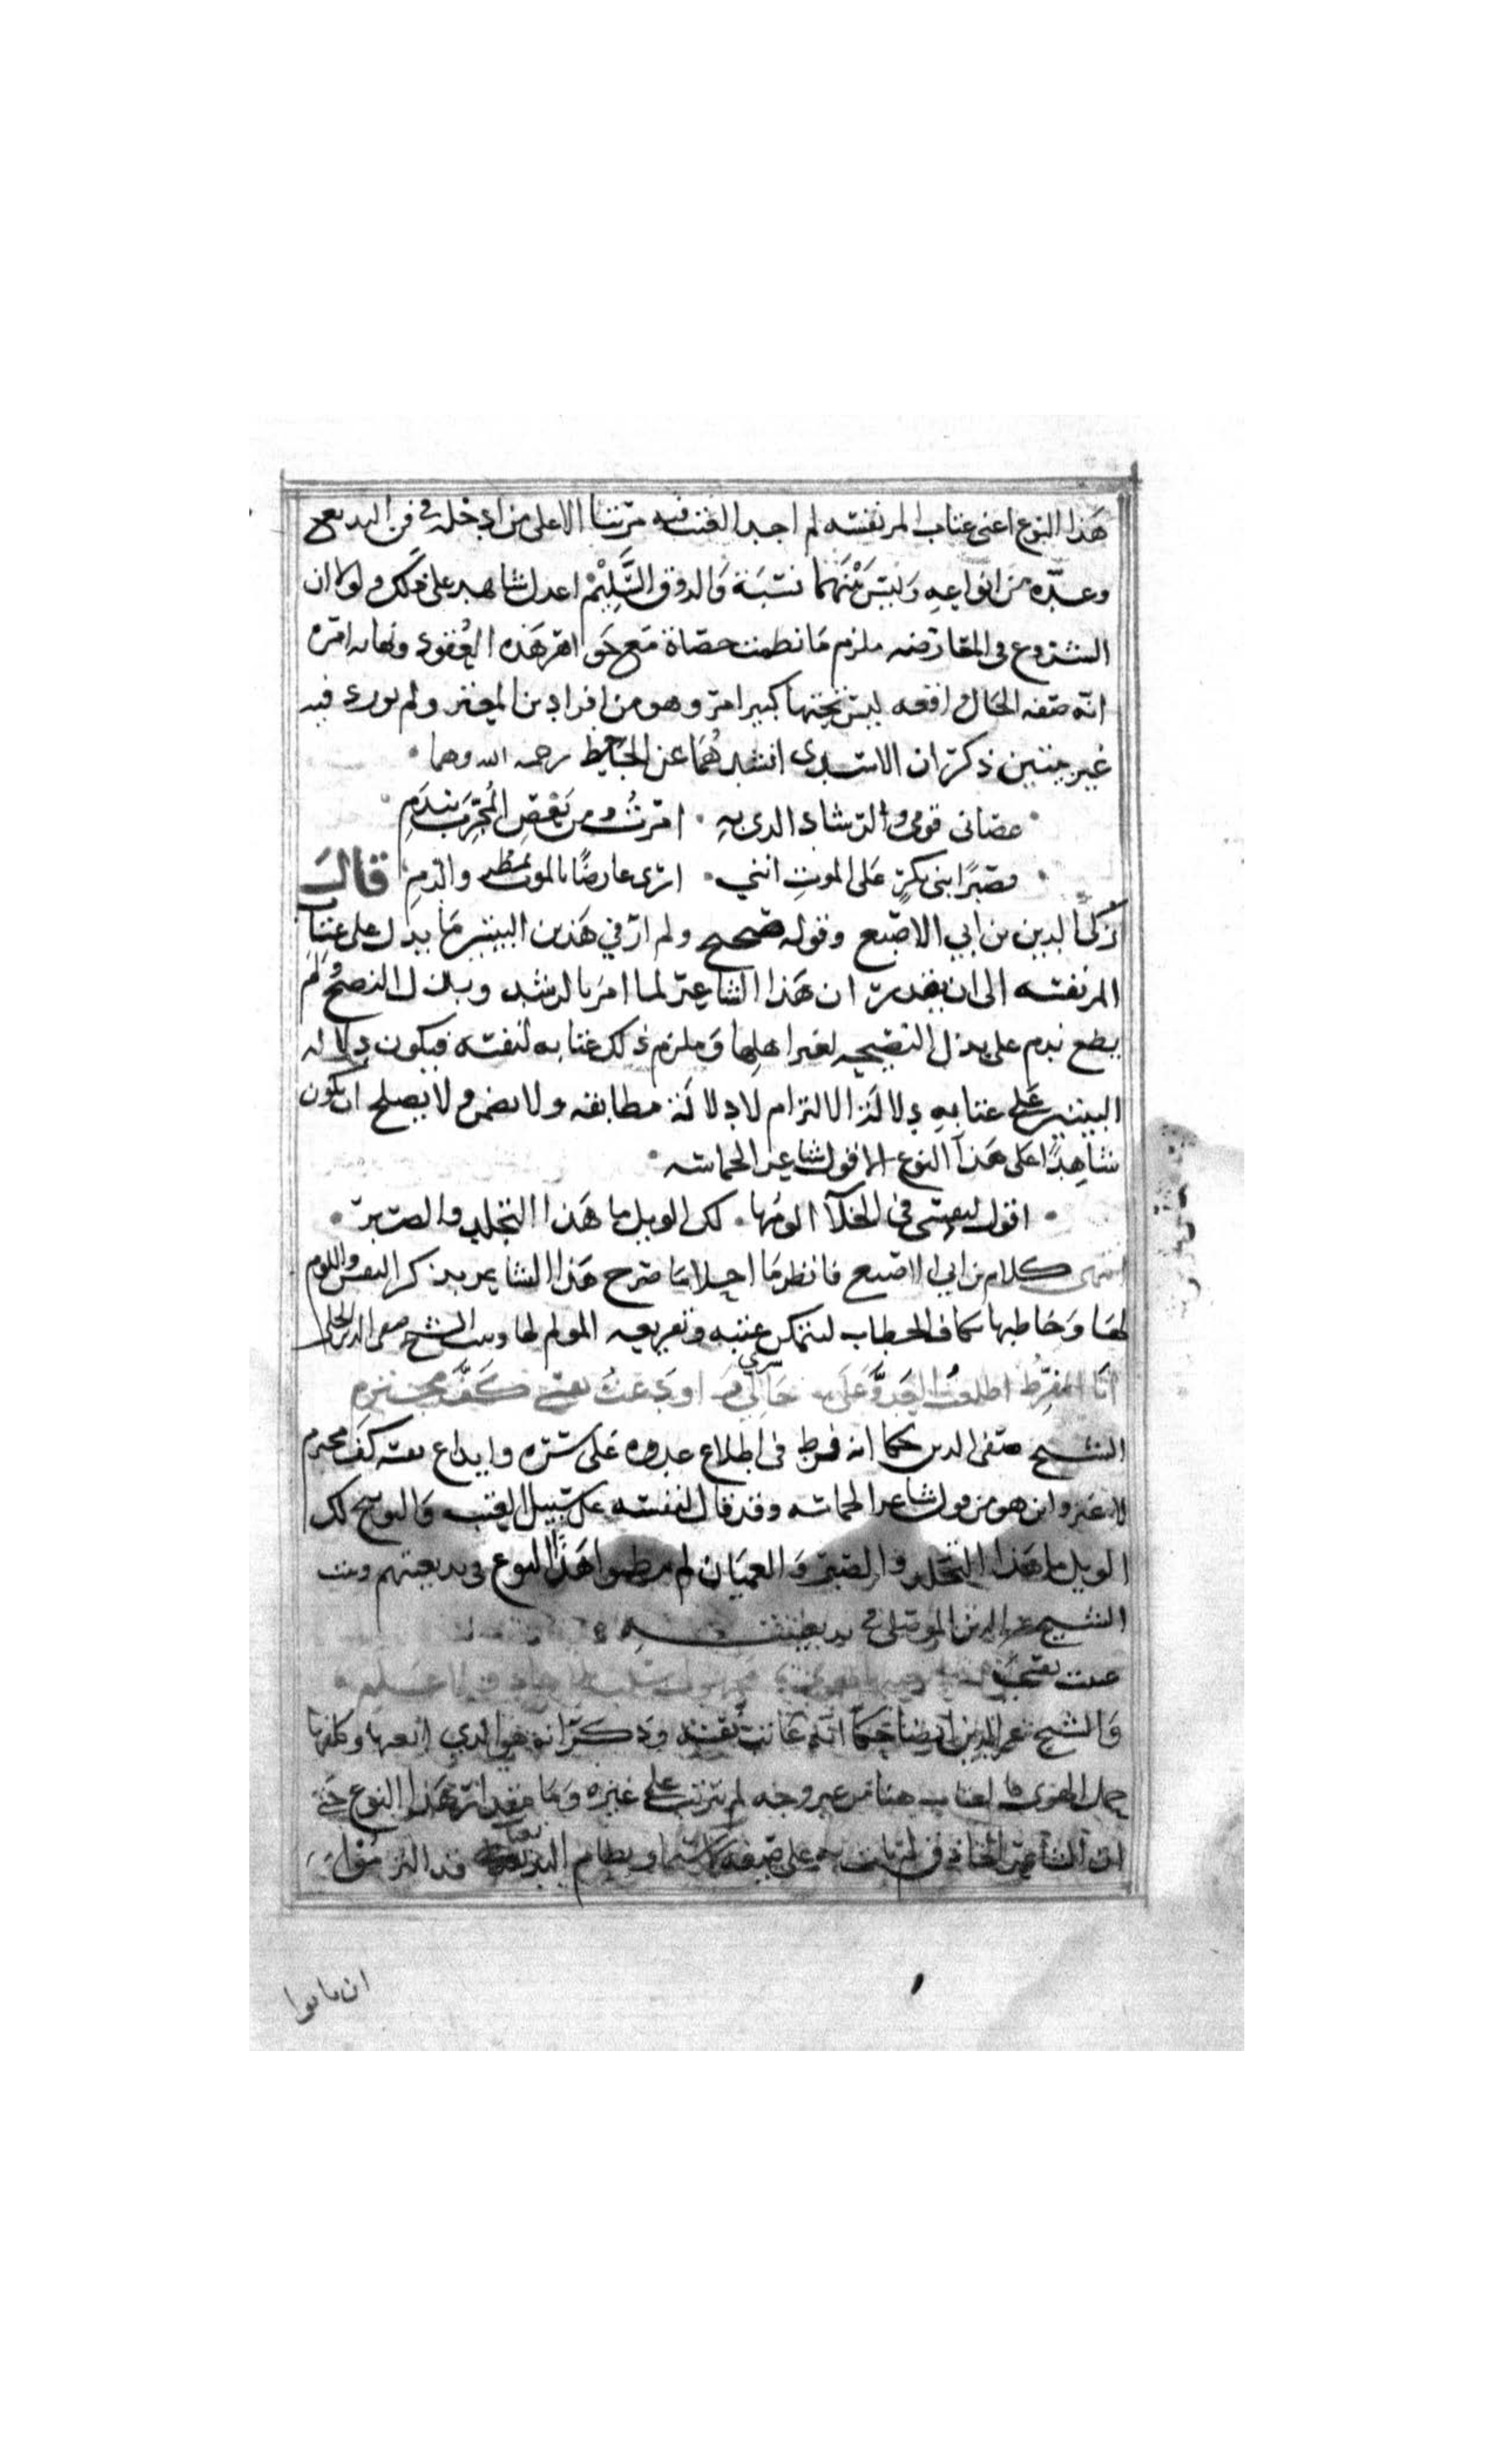 هذا النوع اعنى عتاب المر نفسه لم اجد العتب فيه مرتبا الا على من ادخله في فن البديع
وعده من انواعه وليس بينهما نسبة والذوق السليم اعدل شاهد على ذلك ولولا ان
الشروع في المعارضه ملزم ما نظمت حصاة مع جواهر هذه العقود ونهايه امره
انه صفه الحال واقعه ليس تحتها كبير امر وهو من افراد بن المعتز ولم يورد فيه
غير بيتين ذكر ان الاسدى انشدهما عن الجاحظ رحمه الله وهما
عصانى قومي والرشاد الذى به امرت ومن يعص المجرب يندم
فصبرا بنى بكر على الموت انني ارى عارضا بالموت يمطر والدم قال
زكي الدين بن ابي الاصبع وقوله صحيح ولم ار في هذين البيتين ما يدل على عتاب
المر نفسه الى ان يقدر ان هذا الشاعر لما امر بالرشد وبذل النصح ولم
يطع ندم على بذل النصيحه لغير اهلها وملزم ذلك عتابه لنفسه فيكون دلاله
البيتين على عتابه دلالة الالتزام لا دلالة مطابقه ولا تضمن ولا يصلح ان يكون
شاهدا على هذا النوع الا قول شاعر الحماسه
اقول لنفسى فى الخلآ الومها لك الويل ما هذا التجلد والصبر
انتهى كلام بن ابي الاصبع فانظر ما احلا ما صرح هذا الشاعر بذكر النفس واللوم
لها وخاطبها بكاف الخطاب ليتمكن عتبه وتقريعه المولم لها وبيت الشيخ صفى الدين الحلي
انا المفرط اطلعت العدو على سري اودعت نفسي كف مجترم
الشيخ صفى الدين حكا انه فرط فى اطلاع عدوه على سره وايداع نفسه كف مجترم
لا غير واين هو من قول شاعر الحماسه وقد قال لنفسه على سبيل العتب والتوبيخ لك
الويل ما هذا التجلد والصبر والعميان لم ينظموا هذا النوع فى بديعيتهم وبيت
الشيخ عز الدين الموصلى في بديعيته
عتبت نفسي
والشيخ عز الدين ايضا حكا انه عاتب نفسه وذكر انه هو الذي اتعبها وكلفها
حمل الهوى فالعتاب هنا من غير وجه لم يترتب على غيره وما هذا النوع حتى
ان الشاعر الحاذق لم على صيغه نظام البديعيات قد التزموا
ان ياتوا